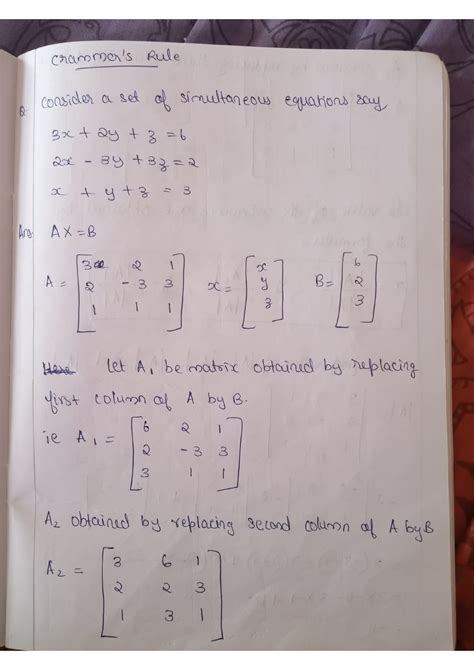 Crammer's Rule
Q. Consider a set of simultaneous equations say,
3x + 2y + z = 6
2x - 3y + 3z = 2
x + y + z = 3
Ans: AX = B
A = [3 2 1
2 -3 3
1 1 1]
x = [x
y
z]
B = [6
2
3]
Let A₁ be matrix obtained by replacing
first column of A by B.
ie A₁ = [6 2 1
2 -3 3
3 1 1]
A₂ obtained by replacing second column of A by B
A₂ = [3 6 1
2 2 3
1 3 1]